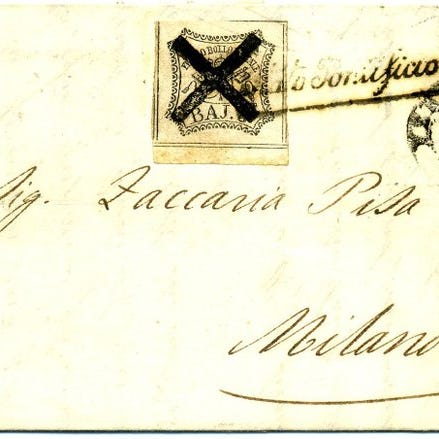 BAJ.
Pontificio
Sig. Zaccaria Pisa
Milano